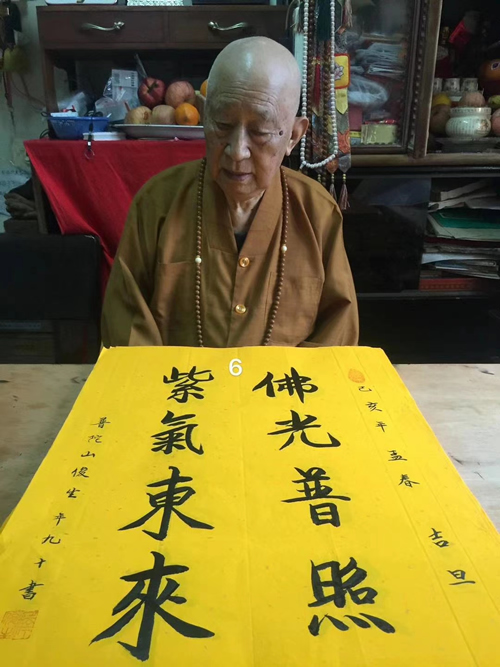 己亥年孟春 吉旦
佛光普照
6
紫氣東來
普陀山俊生年九十書